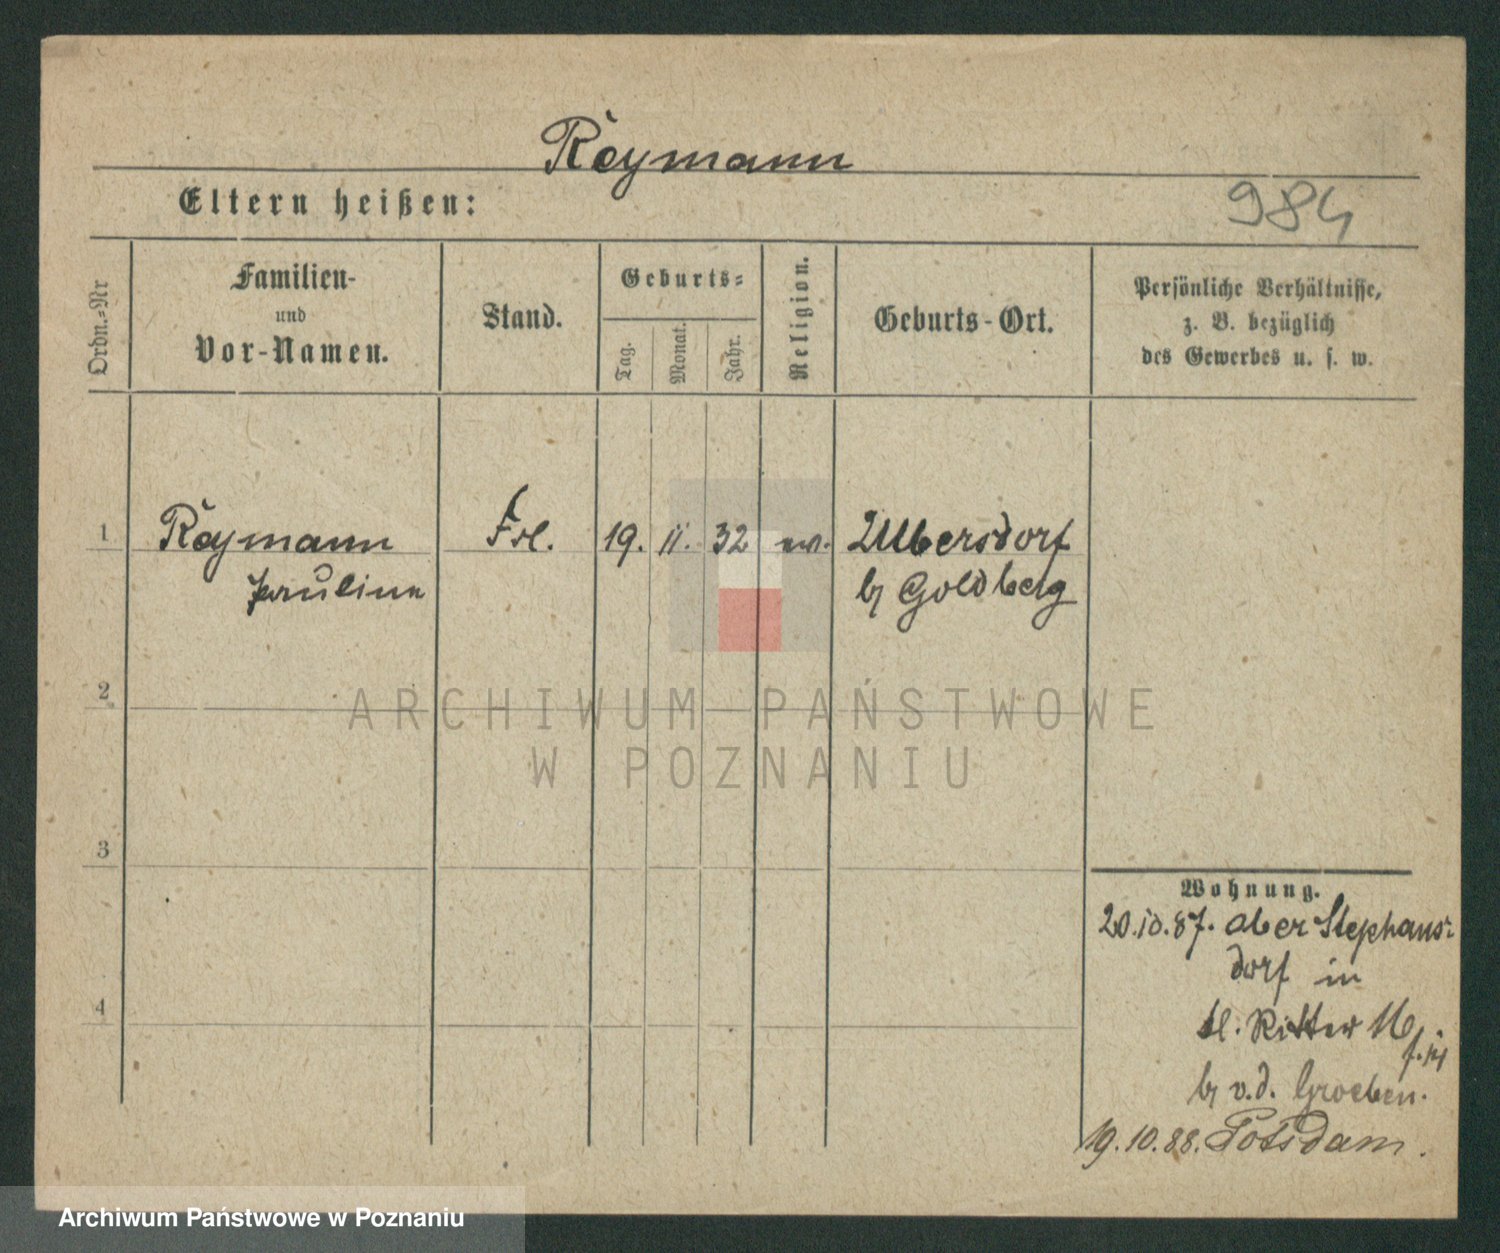 Reymann
Eltern heißen:
984
Ordn.-Nr
Familien-
und
Vor-Namen.
Stand.
Geburts-
Tag.
Monat.
Jahr.
Religion.
Geburts-Ort.
Persönliche Verhältnisse,
z. B. bezüglich
des Gewerbes u. s. w.
1 Reymann Frl. 19. 11. 32 ev. Ulbersdorf
Pauline b Goldberg
2
3
4
Wohnung.
20.10.87. Ober Stephans-
dorf in
kl. Ritter 16
b v.d. Groeben.
19.10.88. Potsdam.
ARCHIWUM PAŃSTWOWE
W POZNANIU
Archiwum Państwowe w Poznaniu